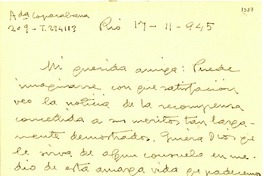 Ada Copacabana
209 - T. 274183
Rio 17-11-945
Mi querida amiga: Puede
imaginarse con que satisfacción
veo la noticia de la recompensa
concedida a sus meritos tan larga-
mente demostrados. Quiera Dios que
le sirva de algun consuelo en me-
dio de esta amarga vida que padecemos